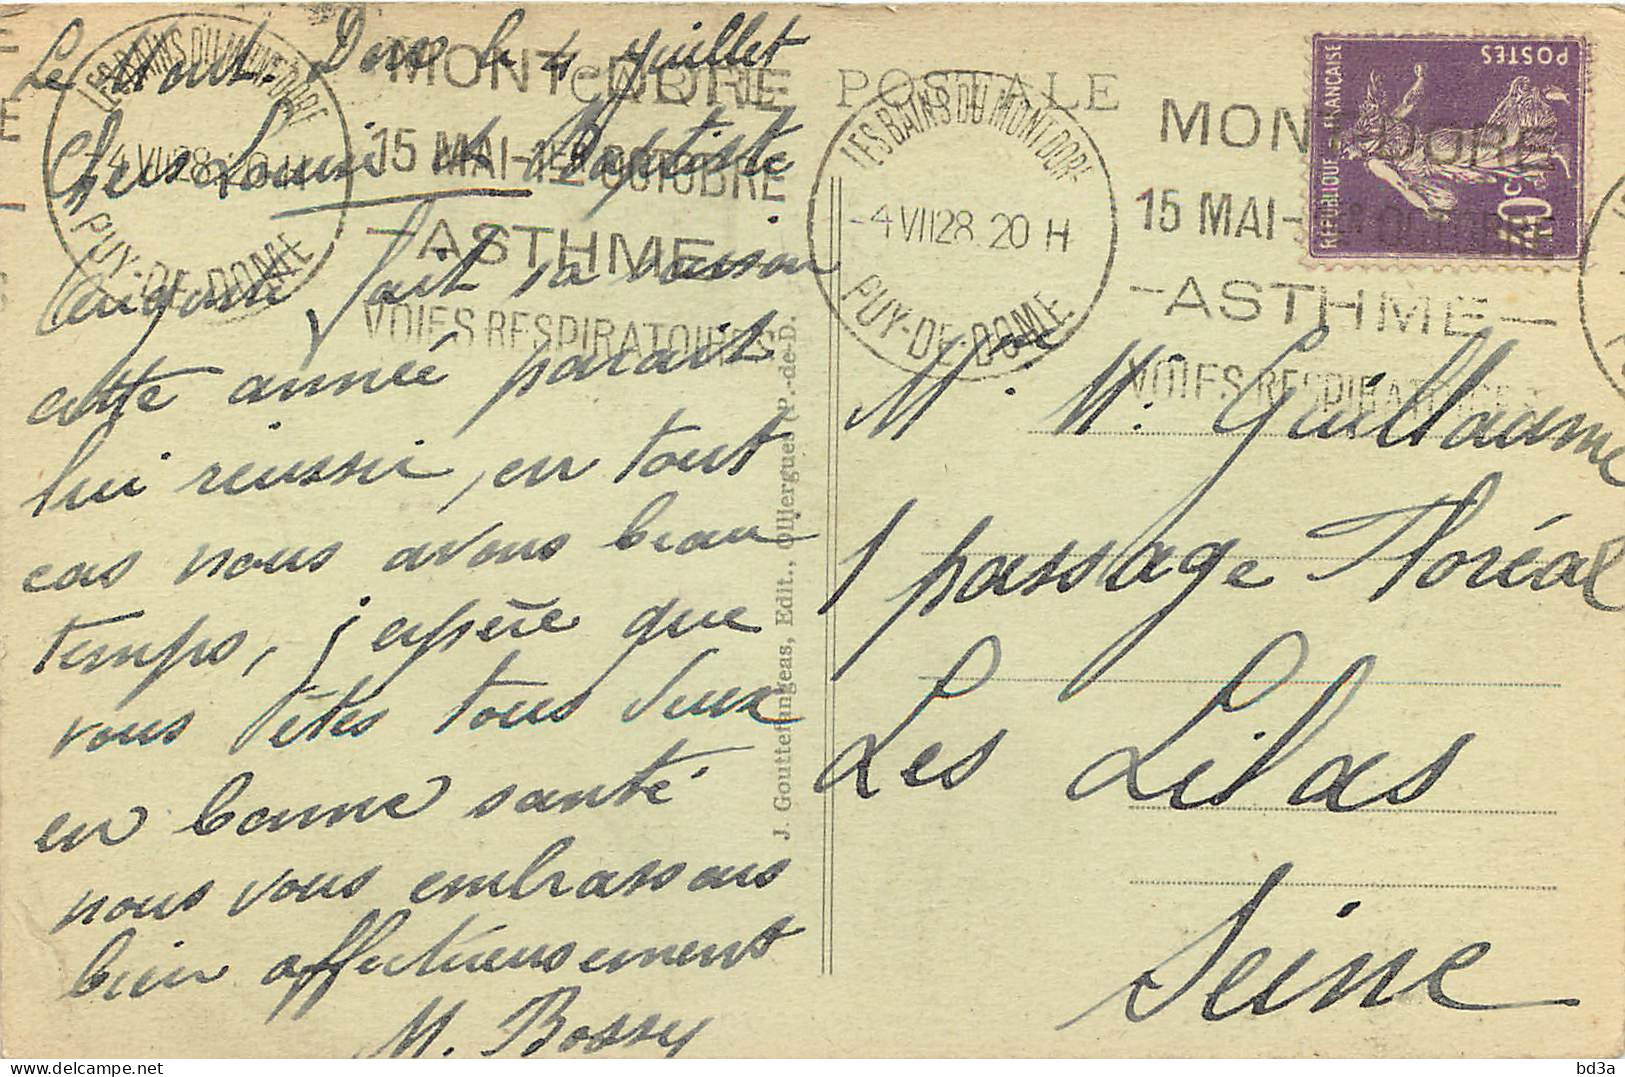 Le Mont-Dore le 4 Juillet
Chers Louis et Baptiste
Auguste fait sa saison
cette année parait
lui réussir, en tout
cas nous avons beau
temps, j'espère que
vous êtes tous deux
en bonne santé
nous vous embrassons
bien affectueusement
M. Bossy
CARTE POSTALE
LES BAINS DU MONT DORE
-4 VII 28 20 H
PUY-DE-DOME
MONT-DORE
15 MAI-1ER OCTOBRE
-ASTHME-
VOIES RESPIRATOIRES
LES BAINS DU MONT DORE
-4 VII 28 20 H
PUY-DE-DOME
MONT-DORE
15 MAI-1ER OCTOBRE
-ASTHME-
VOIES RESPIRATOIRES
REPUBLIQUE FRANÇAISE
POSTES
40c
J. Gouttefangeas, Edit., Olliergues (P.-de-D.
Mr Mme Guillaume
1 passage Floréal
Les Lilas
Seine
bd3a